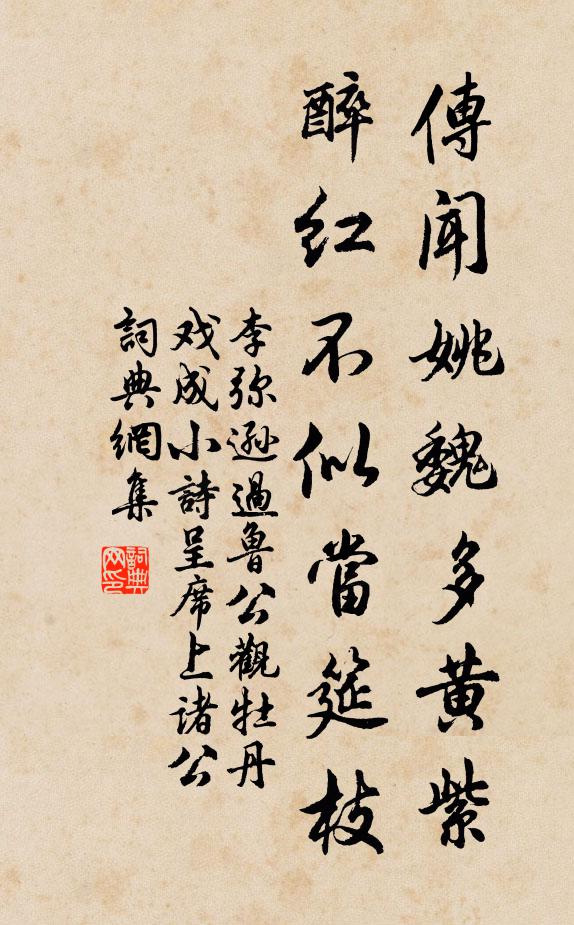 傳聞姚魏多黃紫
醉紅不似當筵枝
李弥遜過魯公觀牡丹
戏成小詩呈席上诸公
詞典網集
詞典网印